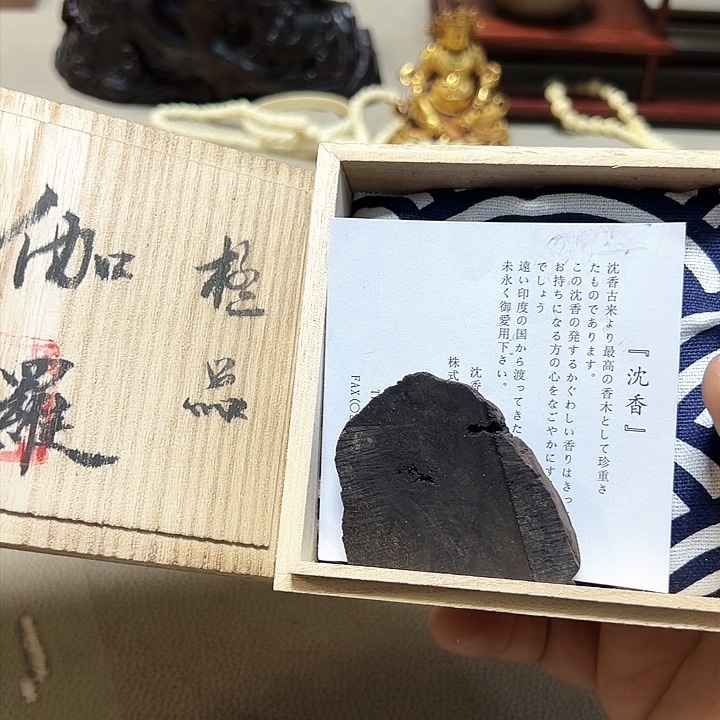 極品
伽羅
『沈香』
沈香古来より最高の香木として珍重さ
たものであります。
この沈香の発するかぐわしい香りはきっ
お持ちになる方の心をなごやかにす
でしょう
遠い印度の国から渡ってきた
末永く御愛用下さい。
沈香
株式
FAX(0